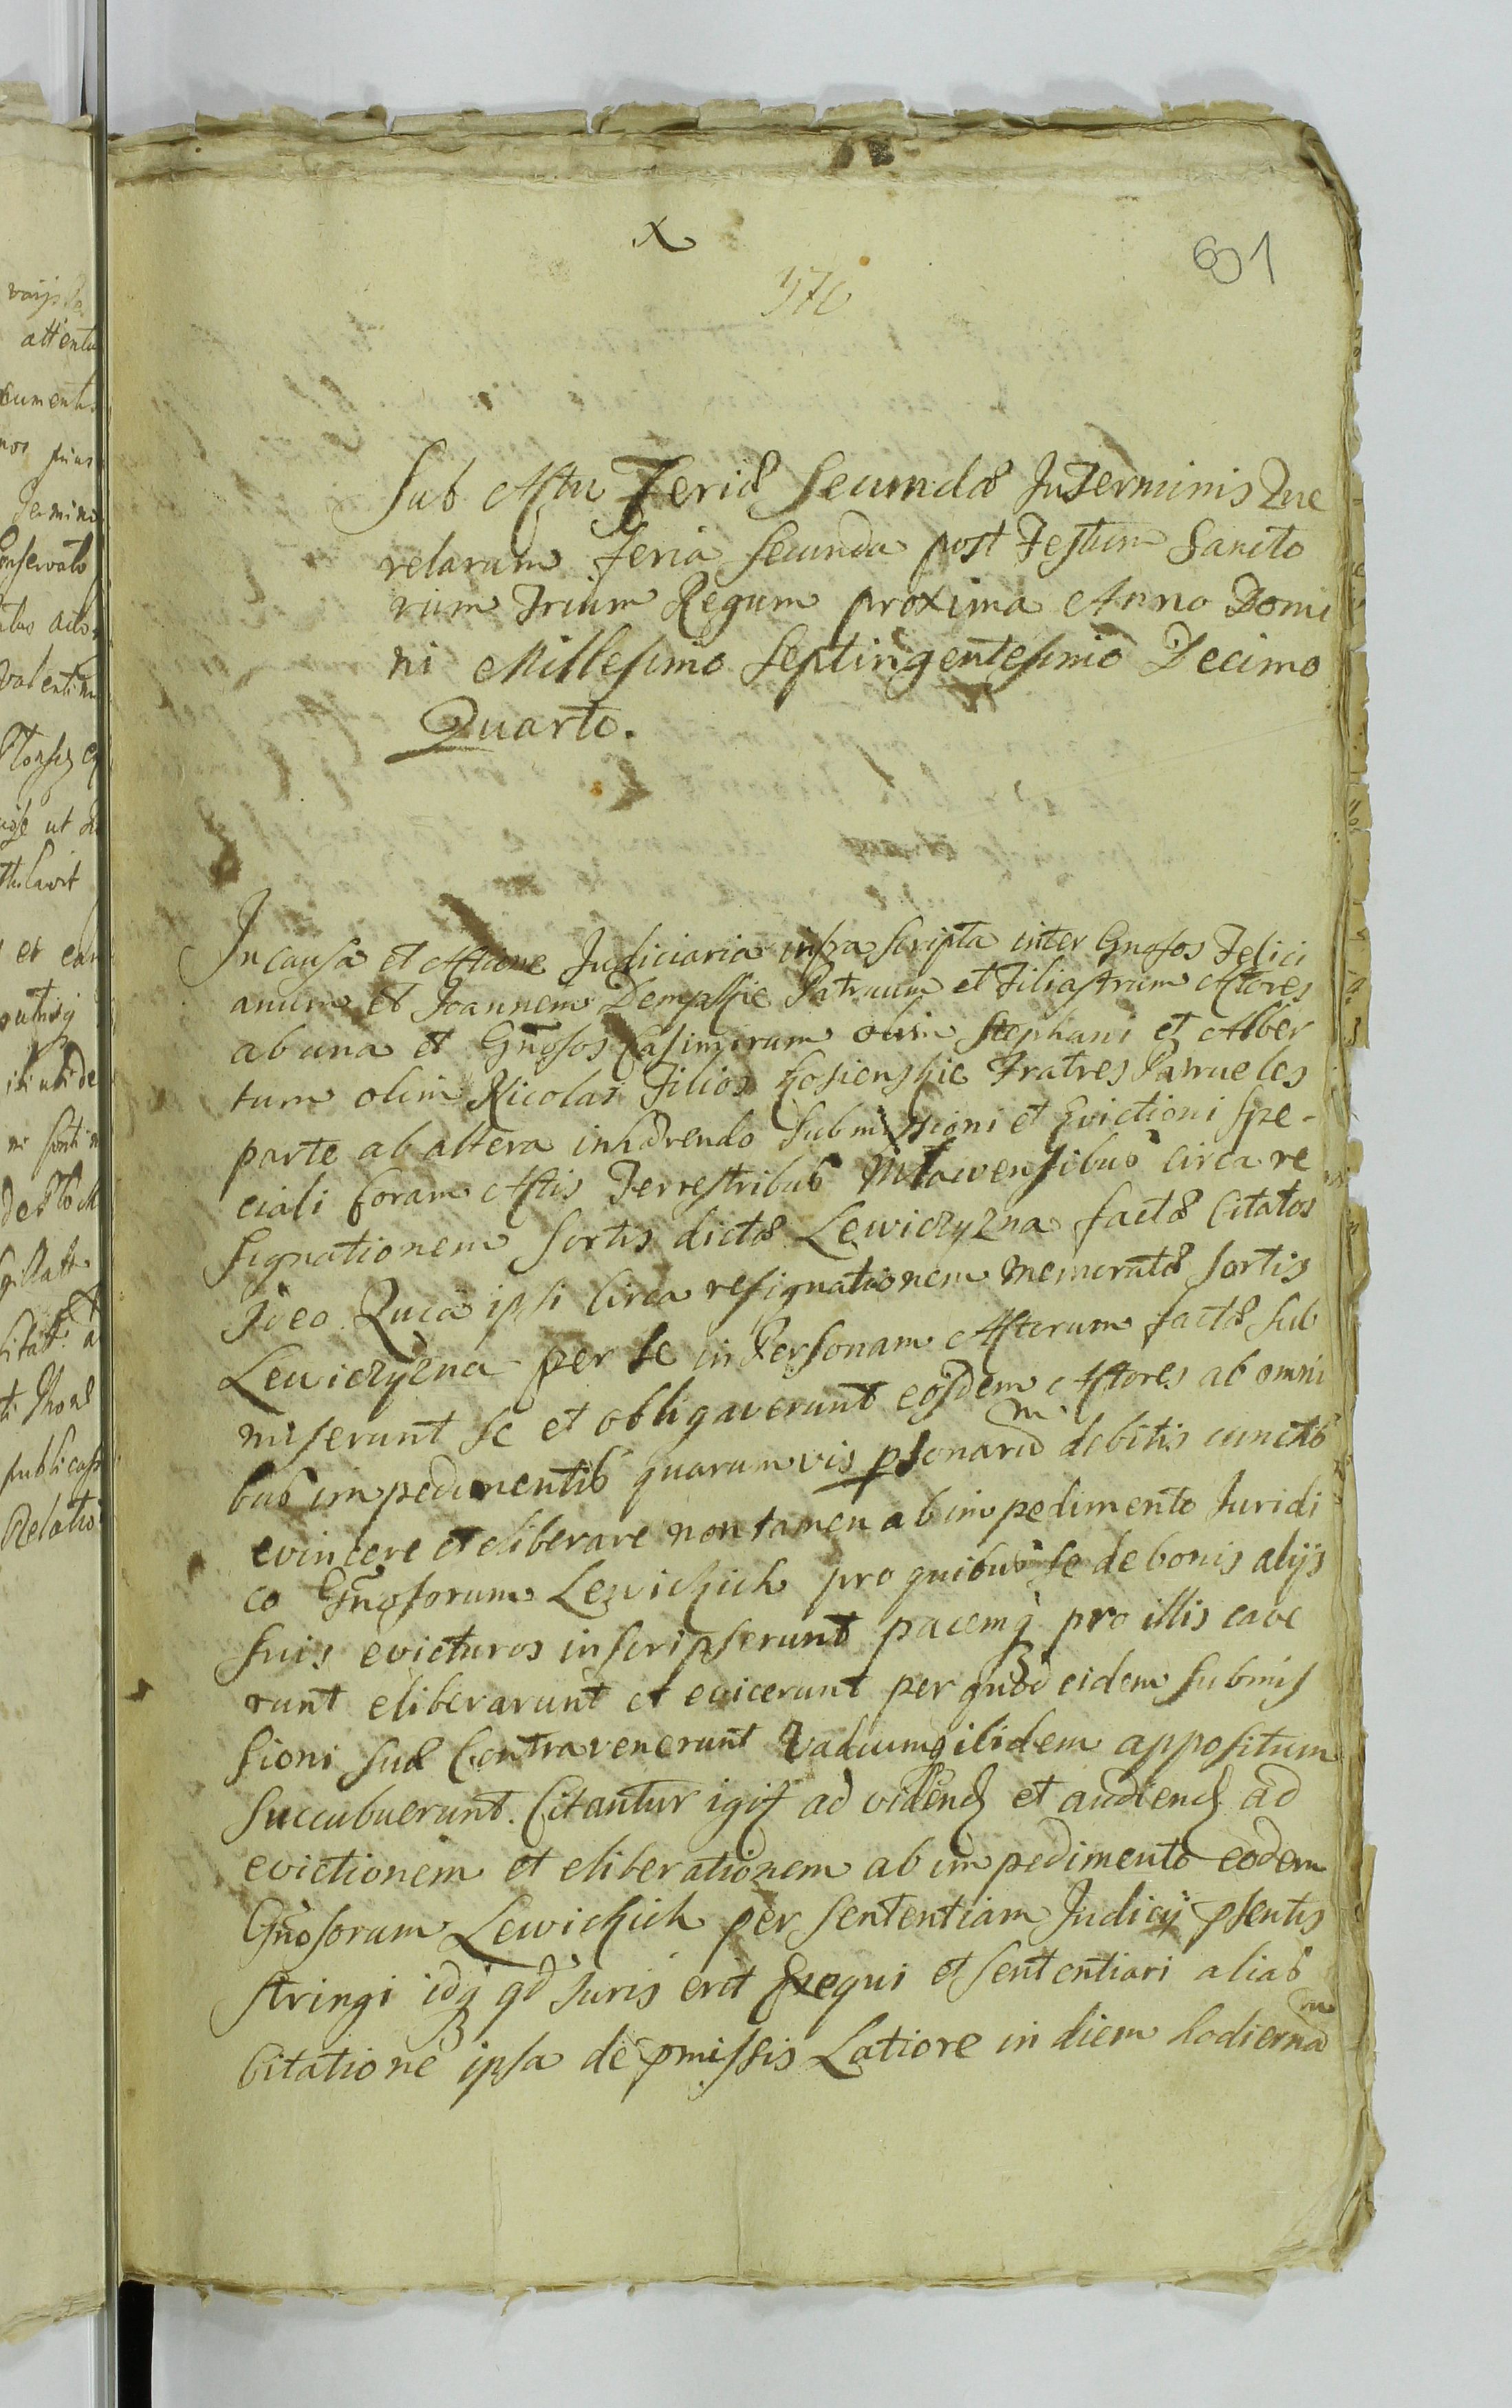 X
601
Sub Actu Feriæ Secundæ In Terminis Que
relarum feria secunda post Festum Sancto
rum Trium Regum proxima Anno Domi
ni Millesimo Septingentesimo Decimo
Quarto.
In causa et Actione Judiciaria infra scripta inter Gnosos Felici
anum et Joannem Dempskie Patruum et Filiastrum Actores
ab una et Gnosos Casimirum olim Stephani et Alber
tum olim Nicolai Filios Kosienskie Fratres Patrueles
parte ab altera inhærendo submissioni et Evictioni spe-
ciali Coram Actis Terrestribus Mlavensibus circa re
signationem sortis dictæ Lewiczyzna factæ Citatos
Ideo Quia ipsi Circa resignationem memoratæ sortis
Lewiczyzna per se in Personam Actorum factæ sub
miserunt se et obligaverunt eosdem Actores ab omni
bus impedimentis quarumvis psonarum debitis cunctis
evincere et eliberare non tamen ab impedimento Juridi
co Gnosorum Lewickich pro quibus se de bonis alijs
suis evicturos inscripserunt pacemq pro illis cave
runt eliberarunt et evicerunt per quod eidem submis
sioni suæ Contravenerunt Vadiumq ibidem appositum
succubuerunt. Citantur igit ad vidend et audiend ad
evictionem et eliberationem ab impedimento eodem
Gnosorum Lewickich per sententiam Judicij psentis
stringi idq qd Juris erit Exequi et sententiari alias
Citatione ipsa de pmissis Latiore in diem hodiernam